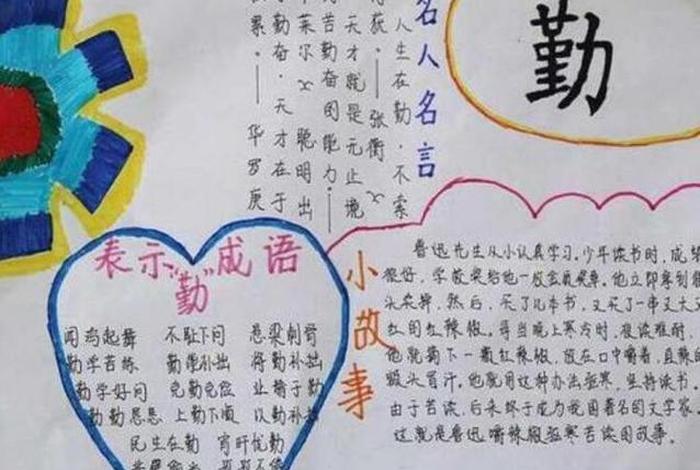 勤
名人名言
人生在勤,不索
何获。——张衡
天才就是无止境
刻苦勤奋的能力。——
卡莱尔
聪明出
于勤奋,天才在于
积累。——华罗庚
表示"勤"成语
闻鸡起舞 不耻下问 悬梁刺骨
勤学苦练 勤能补拙 将勤补拙
勤学好问 克勤克俭 业精于勤
勤勤恳恳 上勤下顺 以勤补拙
民生在勤 宵旰忧勤
小故事
鲁迅先生从小认真学习。少年读书时,成绩
很好,学校奖给他一枚金质奖章。他立即拿到
头卖掉,然后,买了几本书,又买了一串又大
红的红辣椒。每当晚上寒冷时,夜读难耐,
他就摘下一颗红辣椒,放在口中嚼着,直辣的
额头冒汗。他就用这种办法驱寒,坚持读书
由于苦读,后来终于成为我国著名的文学家
这就是鲁迅嚼辣椒驱寒苦读的故事。